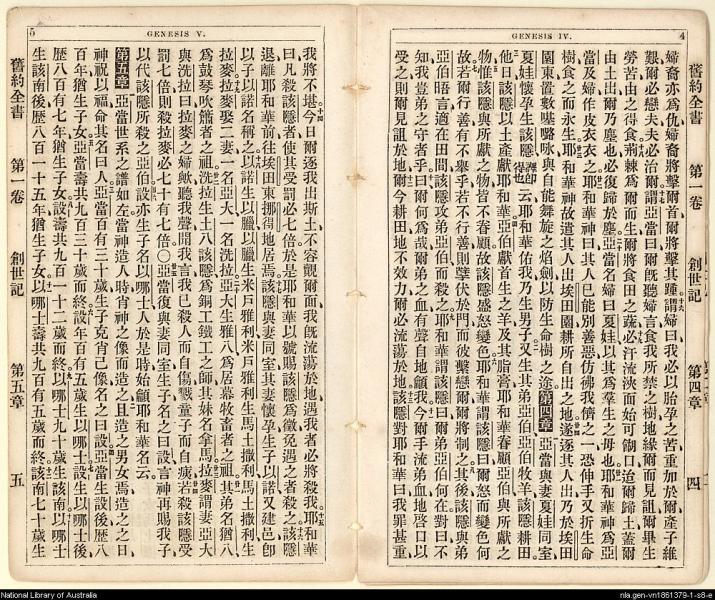 4
GENESIS IV.
舊約全書 第一卷 創世記 第四章 四
婦裔亦爲仇婦裔將擊爾首爾將擊其踵謂婦曰我必以胎孕之苦重加於爾產子維
艱爾必戀夫夫必治爾謂亞當曰爾旣聽婦言食我所禁之樹地緣爾而見詛爾畢生
勞苦由之得食荊棘爲爾而生爾將食田之蔬必汗流浹而始可餬口迨爾歸土蓋爾
由土出爾乃塵也必復歸於塵亞當名婦曰夏娃以其爲羣生之母也耶和華神爲亞
當及婦作皮衣衣之耶和華神曰其人已能別善惡仿彿我儕之一恐伸手又折生命
樹食之而永生耶和華神故遣其人出埃田園耕所自出之地遂逐其人出乃於埃田
園東置咏與自能舞旋之焰劍以防生命樹之途第四章亞當與妻夏娃同室
夏娃懷孕生該隱云耶和華佑我乃生男子又生其弟亞伯亞伯牧羊該隱耕田
他日該隱以土產獻耶和華亞伯獻首生之羊及其脂膏耶和華眷顧亞伯與所獻之
物惟該隱與所獻之物皆不眷顧故該隱盛怒變色耶和華謂該隱曰爾怒而變色何
故若爾行善有不舉乎若不行善則孽伏於門而彼繫戀爾爾將制之其後該隱與弟
亞伯語言適在田間該隱攻弟亞伯而殺之耶和華謂該隱曰爾弟亞伯何在對曰不
知我豈弟之守者乎曰爾何爲哉爾弟之血有聲自地籲我今爾手流弟血地啓口以
受之則爾見詛於地爾今耕田地不效力爾必流蕩於地該隱對耶和華曰我罪甚重
5
GENESIS V.
我將不堪今日爾逐我出斯土不容覿爾面我旣流蕩於地遇我者必將殺我耶和華
曰凡殺該隱者使其受罰必七倍於是耶和華以號賜該隱爲徵免遇之者殺之該隱
退離耶和華前往埃田東挪得地居焉該隱與妻同室其妻懷孕生子以諾又建邑卽
以子以諾名稱之以諾生以臘以臘生米戸雅利米戸雅利生馬土撒利馬土撒利生
拉麥拉麥娶二妻一名亞大一名洗拉亞大生雅八爲居幕牧畜者之祖其弟名猶八
爲鼓琴吹簫者之祖洗拉生土八該隱爲銅工鐵工之師其妹名拿馬拉麥謂妻亞大
與洗拉曰拉麥之婦歟聽我聲聞我言我已殺人而自傷戮童子而自痍若殺該隱受
罰七倍則殺拉麥必七十有七倍○亞當復與妻同室生子名之曰設言神再賜我子
以代該隱所殺之亞伯設亦生子名以哪士人於是時始籲耶和華名云
第五章亞當世系之譜如左當神造人時肖神之像而造之且造之男女焉造之之日
神祝以福命其名曰人亞當百有三十歲生子克肖己像名之曰設亞當生設後歷八
百年猶生子女亞當壽共九百三十歲而終設年百有五歲生以哪士設生以哪士後
歷八百有七年猶生子女設壽共九百一十二歲而終以哪士九十歲生該南以哪士
生該南後歷八百一十五年猶生子女以哪士壽共九百有五歲而終該南七十歲生
舊約全書 第一卷 創世記 第五章 五
National Library of Australia
nla.gen-vn1861379-1-s8-e